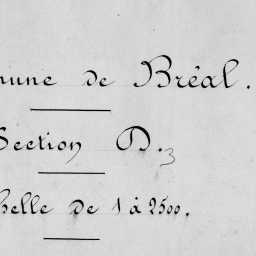 mune de Bréal.
Section D.3
helle de 1 à 2500.